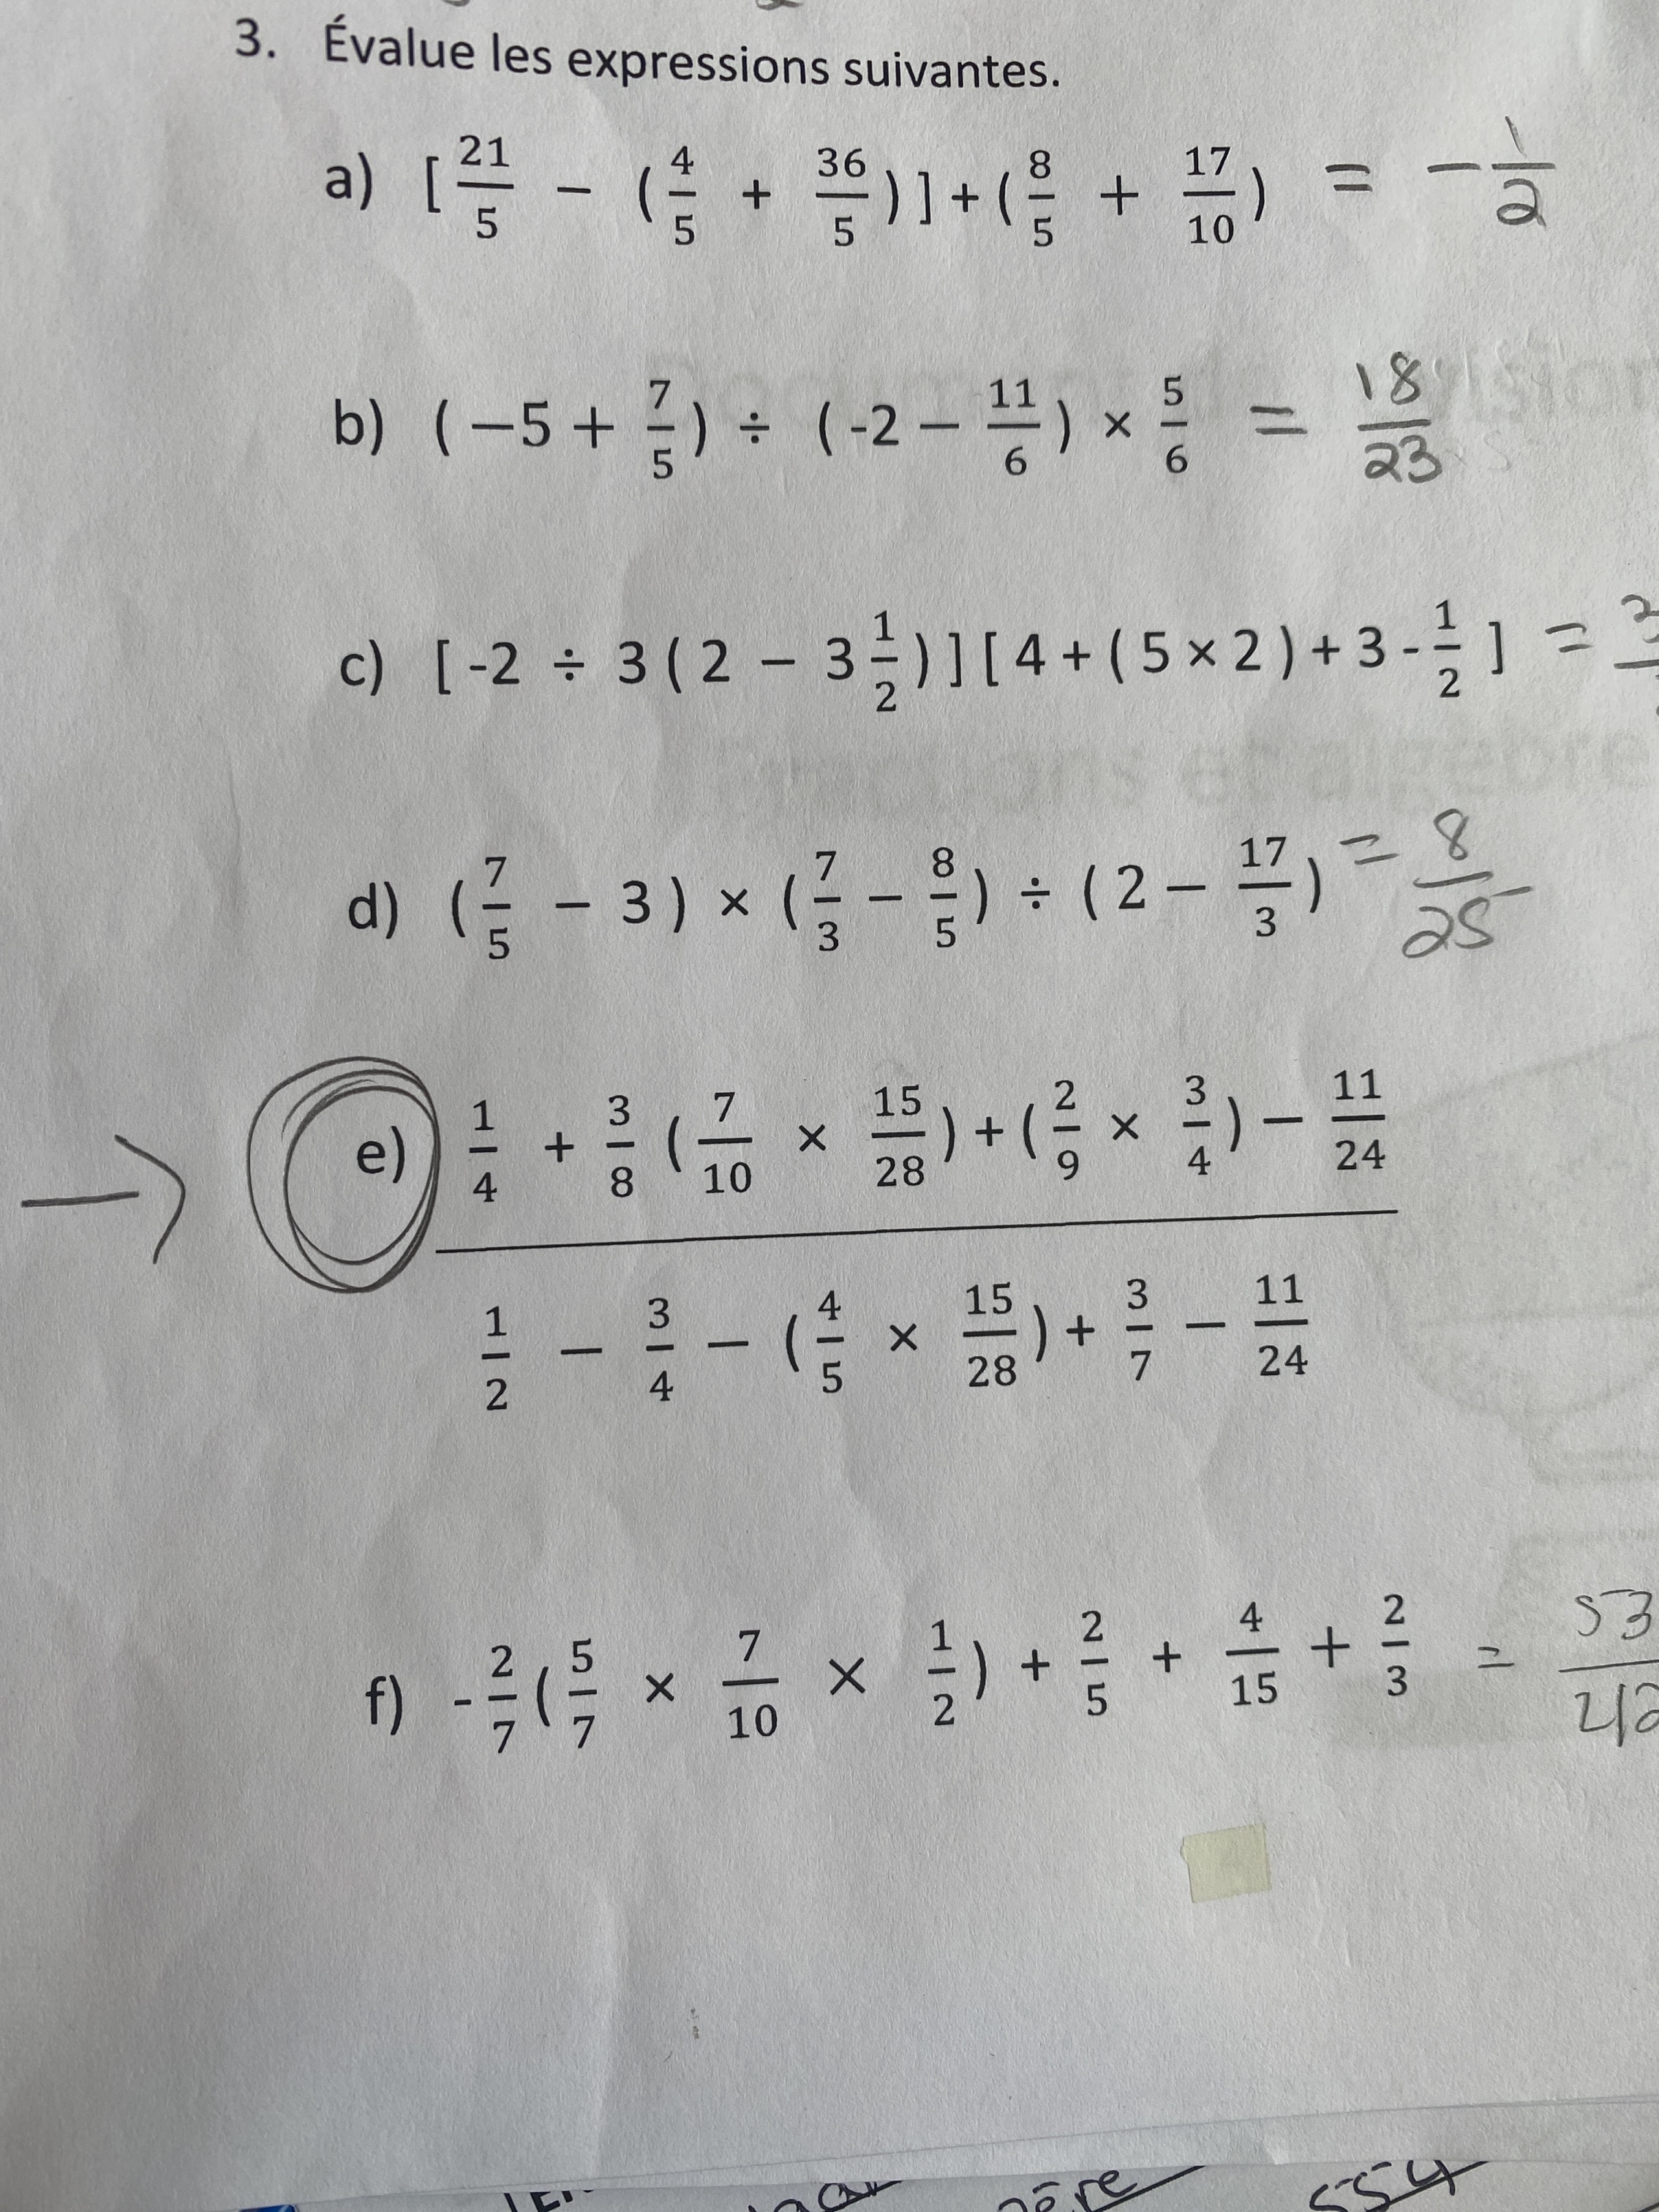 3. Évalue les expressions suivantes.
a) [21/5 − (4/5 + 36/5)] + (8/5 + 17/10) = −1/2
b) (−5 + 7/5) ÷ (-2 − 11/6) × 5/6 = 18/23
c) [-2 ÷ 3(2 − 3 1/2)][4 + (5 × 2) + 3 - 1/2] =
d) (7/5 − 3) × (7/3 − 8/5) ÷ (2 − 17/3) = 8/25
→ e) 1/4 + 3/8 (7/10 × 15/28) + (2/9 × 3/4) − 11/24
1/2 − 3/4 − (4/5 × 15/28) + 3/7 − 11/24
f) -2/7 (5/7 × 7/10 × 1/2) + 2/5 + 4/15 + 2/3 = 53/42
554